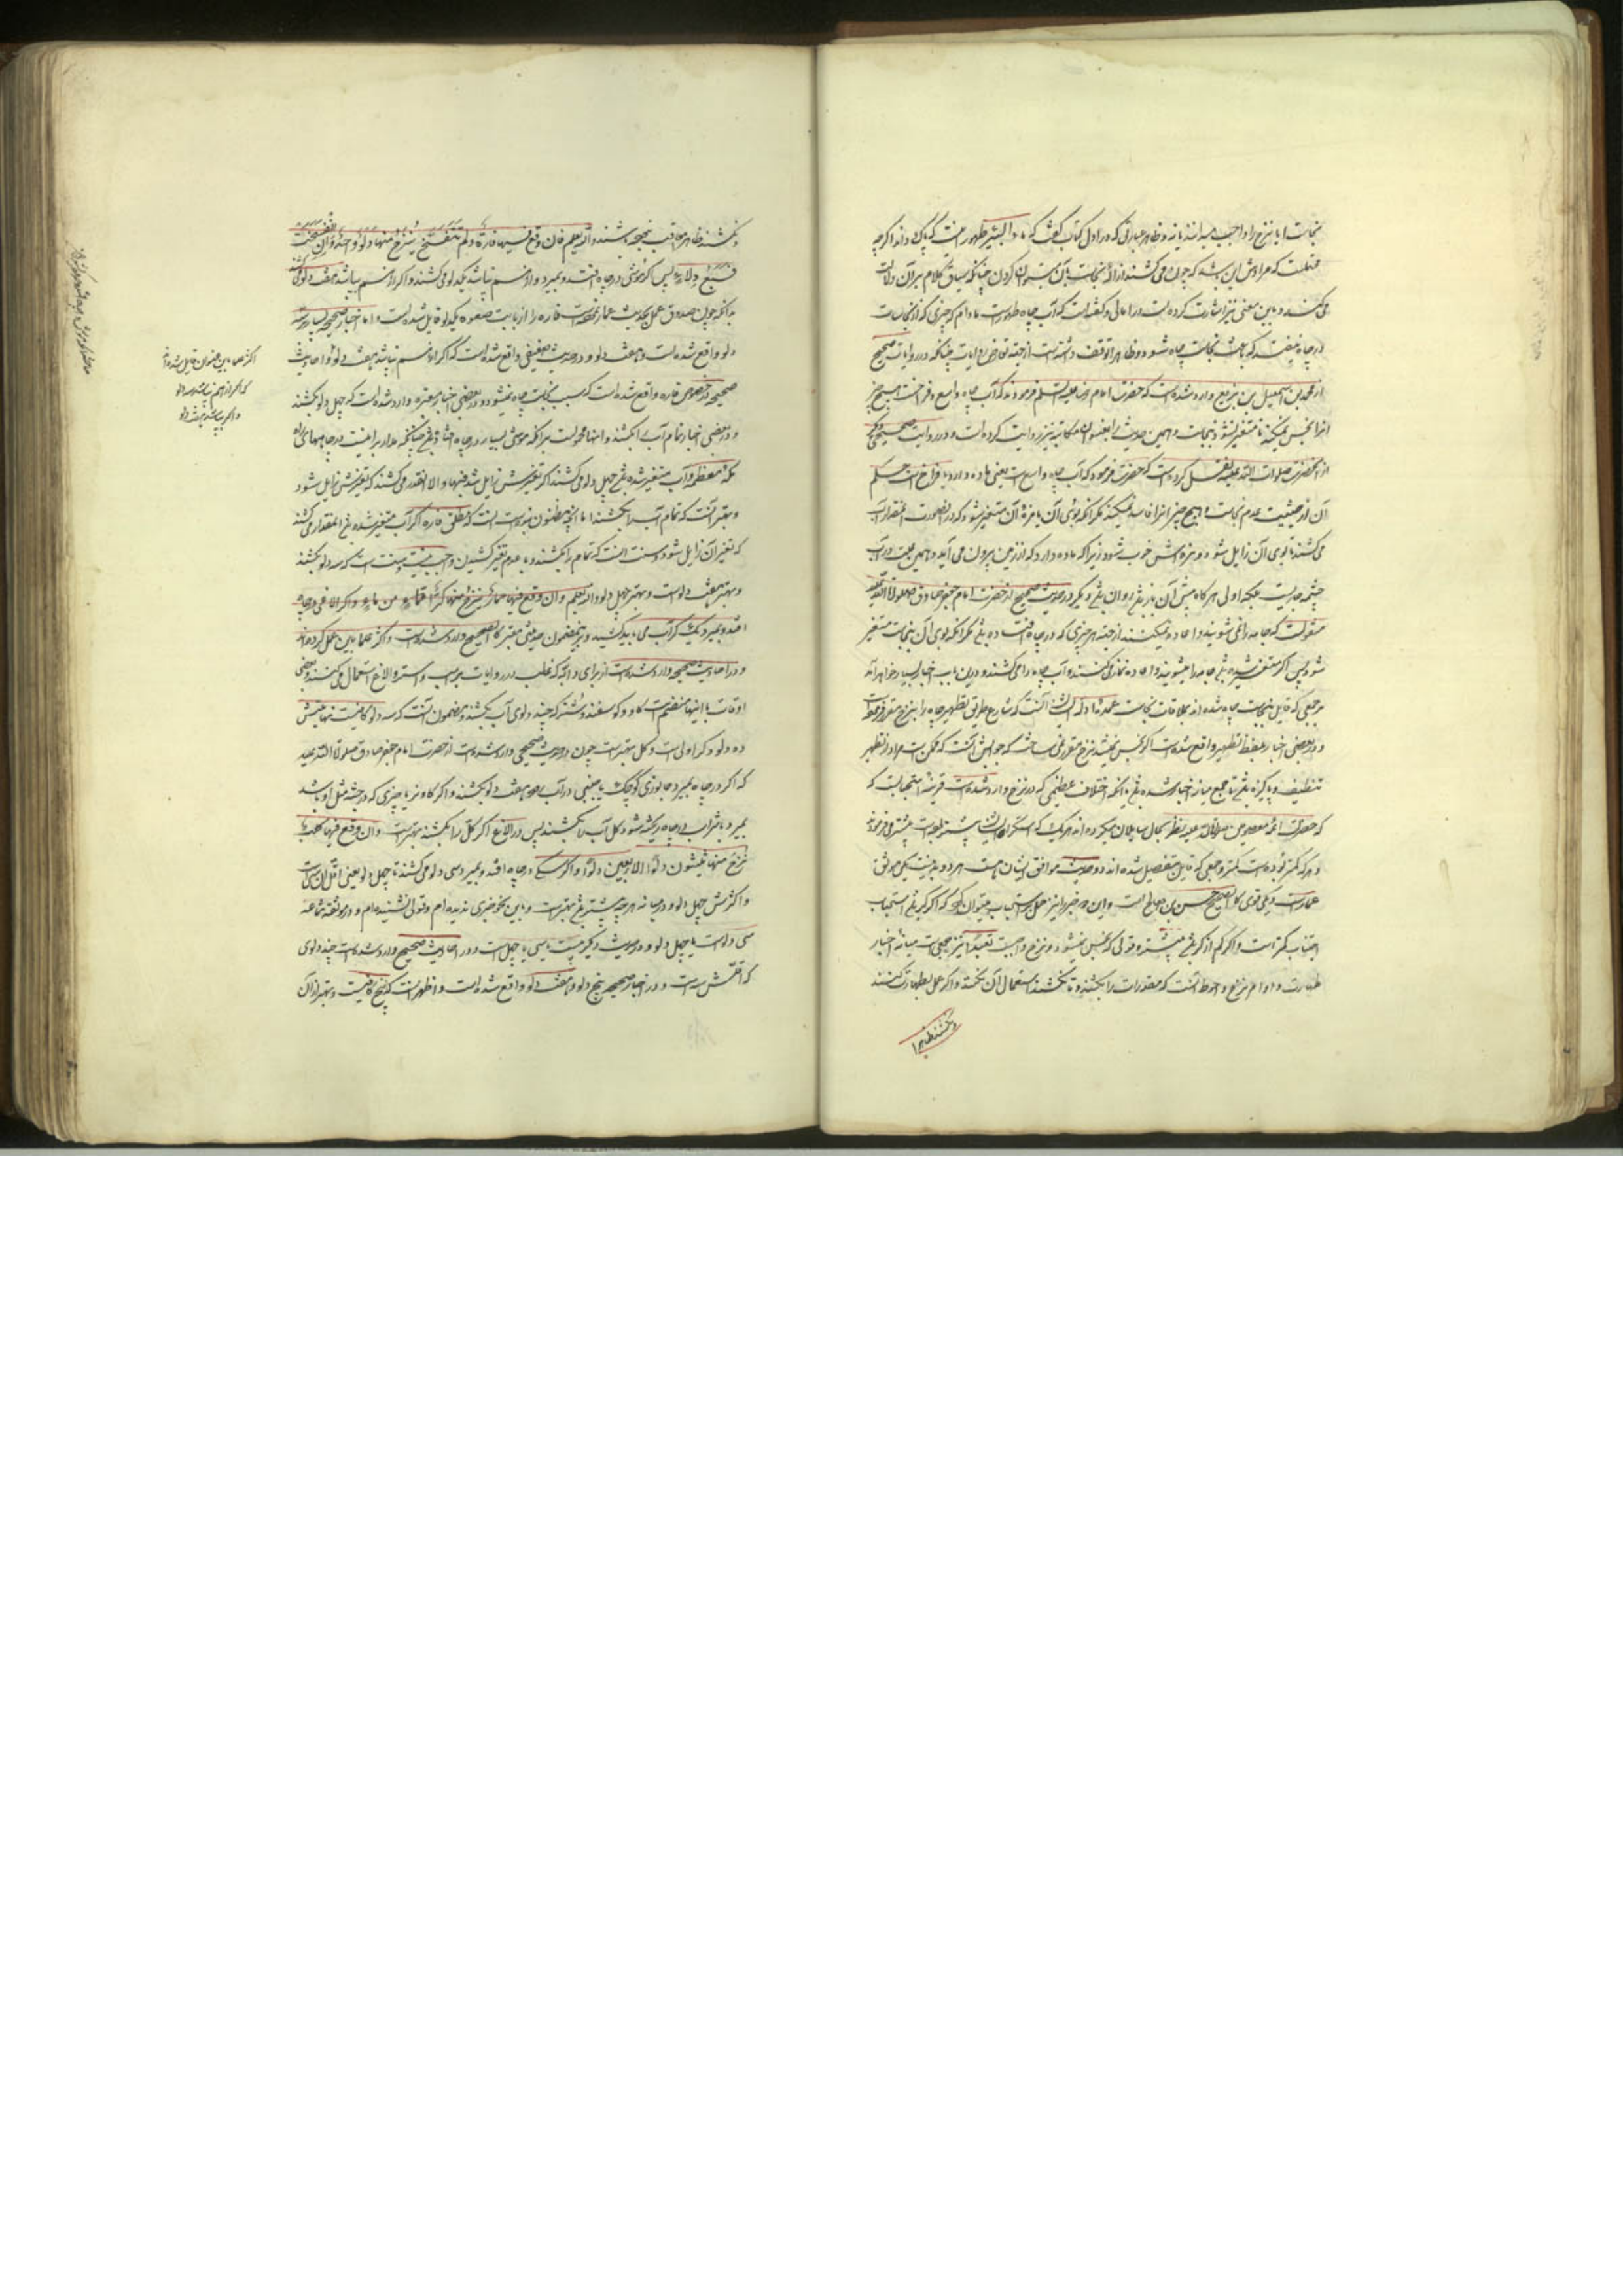 نجاست اما نزح را واجب میدانند یا نه و ظاهر عبارتی که در اول کتاب گفت که ماء البئر طهور اینست که پاک داند اگرچه
محتملست که مرادش این باشد که چون می کشند ازاله نجاست بآن میتوان کردن چنانکه سیاق کلام بر آن دلالت
می کند و باین معنی نیز اشارت کرده است در امالی و گفته است که آب چاه طهورست مادام که چیزی که از نجاسات
در چاه نیفتد که باعث نجاست چاه شود و ظاهرا توقف داشته است از جهة تعارض روایات چنانکه در روایات صحیح
از محمد بن اسمعیل بن بزیع وارد شده است که حضرت امام رضا علیه السلم فرمودند که آب چاه واسع و فراخست هیچ چیز
انرا نجس نمیکند تا متغیر نشود بنجاست و همین حدیث را بعنوان مکاتبه نیز روایت کرده است و در روایت صحیح دیگر
از آنحضرت صلوات الله علیه نقل کرده است که حضرت فرمود که آب چاه واسع است یعنی ماده دارد یا فراخ است حکم
آن از حیثیت عدم نجاست و هیچ چیز انرا فاسد نمیکند مگر آنکه بوی آن یا مزه آن متغیر شود که در اینصورت آنمقدار آب
می کشند تا بوی آن زایل شود و مزه اش خوب شود زیرا که ماده دارد که از زمین بیرون می آید و همین علت در آب
چشمه جاریست بلکه اولی هر گاه پیش آن باز باشد و روان باشد و دیگر در حدیث صحیح از حضرت امام جعفر صادق صلوات الله علیه
منقولست که جامه را نمی شویند و اعاده نمیکنند از جهة هر چیزی که در چاه افتاده باشد مگر آنکه بوی آن بنجاست متغیر
شود پس اگر متعفن شده باشد جامه را میشویند و اعاده نماز می کنند و آب چاه را می کشند و درین باب اخبار بسیار خواهد آمد
و جمعی که قایل بنجاست چاه شده اند بملاقات نجاست عمده شان آنست که شارع طریق تطهیر چاه را بنزح مقرر فرموده است
و در بعضی اخبار بلفظ تطهیر واقع شده است اگر نجس نمیشد نزح مقرر نمی ساخت که جوابش آنست که ممکن است مراد از تطهیر
تنظیف و پاکیزه باشد تا جمع میان اخبار شده باشد با آنکه اختلاف عظیمی که در نزح وارد شده است قرینه استحبابست که
که حضرات ائمه معصومین صلوات الله علیهم نظر بحال سایلان میکرده اند هر یک که بیشتر
و هر که کمتر بوده است کمتر و جمعی که قایل بتفصیل شده اند دو حدیث موافق ایشان هست هر دو بد نیست یکی موثق
عمارست و یکی قوی کالصحیح حسن بن صالح است و این دو خبر را نیز حمل بر استحباب میتوان کرد که اگر کر باشد استحباب
اجتناب کمتر است و اگر کم از کر باشد بیشتر و قولی که نجس نمیشود و نزح واجبست تعبدا نیز جمعی است میانه اخبار
طهارت و اوامر نزح و احوط آنست که مقدرات را بکشند و تا نکشند استعمال آن نکنند و اگر عمل بطهارت کنند
و نکشند ظاهرا
و نکشند ظاهرا معاقب نخواهند شد والله یعلم فان وقع فیها فارة ولم تتفسخ ینزح منها دلو واحد وان تفسخت
فسبع دلاء پس اگر موشی در چاه افتد و بمیرد و از هم نپاشد یکدلو می کشند و اگر از هم بپاشد هفت دلو می کشند
بدانکه چون صدوق عمل بحدیث عمار نموده است فاره را از بابت صعوه یکدلو قایل شده است و اما اخبار صحیحه بسیار سه
دلو واقع شده است و هفت دلو و در حدیث ضعیفی واقع شده است که اگر از هم نپاشد هفت دلو و احادیث
صحیحه در خصوص فاره واقع شده است که بسبب نجاست چاه نمیشود و در بعضی اخبار معتبره وارد شده است که چهل دلو بکشند
و در بعضی اخبار تمام آب را بکشند و اینها محمولست بر آنکه موش بسیار در چاه افتاده باشد چنانکه مدار بر اینست در چاههای راه
مکه معظمه و آب متغیر شده باشد چهل دلو می کشند اگر تغیرش زایل شد فبها و الا آنقدر می کشند که تغیرش زایل شود
و بهتر آنست که تمام آب را بکشند اما آنچه مظنون بنده است آنست که مطلق فاره اگر آب متغیر شده باشد آنمقدار می کشند
که تغیر آن زایل شود و سنت آنست که تمام را بکشند و با عدم تغیر کشیدن واجب نیست و سنت است که سه دلو بکشند
و بهتر هفت دلوست و بهتر چهل دلو والله یعلم وان وقع فیها حمار ینزح منها کر من ماء و اگر الاغی در چاه
افتد و بمیرد یک کر آب می باید کشید و باین مضمون حدیثی معتبر کالصحیح وارد شده است و اکثر علما باین عمل کرده اند
و در احادیث صحیحه وارد شده است از برای دابه که غالب در روایات بر اسب و استر و الاغ استعمال می کنند و بعضی
اوقات با اینها منضم است گاو و گوسفند و شتر که چند دلوی آب بکشند و مضمون آنست که سه دلو کافیست نهایتش
ده دلو و کر اولی است و کل بهترست چون در حدیث صحیحی وارد شده است از حضرت امام جعفر صادق صلوات الله علیه
که اگر در چاه بمیرد جانوری کوچک یا جنبی در آب رود هفت دلو بکشند و اگر گاو نر یا چیزی که در جثه مثل او باشد
بمیرد یا شراب در چاه ریخته شود کل آب را بکشند پس در الاغ اگر کل را بکشند بهترست وان وقع فیها کلب
نزح منها ثلثون دلوا الی اربعین دلوا و اگر سگی در چاه افتد و بمیرد سی دلو می کشند تا چهل دلو یعنی اقل آن سی است
و اکثرش چهل دلو و در میانه هر چه بیشتر باشد بهترست و باین نحو خبری ندیده ام و قولی نشنیده ام و در موثقه سماعه
سی دلوست یا چهل دلو و در حدیث دیگر بیست یا سی یا چهل است و در احادیث صحیح وارد شده است چند دلوی
که اقلش سه است و در اخبار صحیحه پنج دلو و هفت دلو واقع شده است و اظهر آنست که پنج کافیست و بهتر از آن
اکثر علما باین عنوان قایل شده اند
که اگر از هم نپاشد سه دلو
و اگر بپاشد هفت دلو